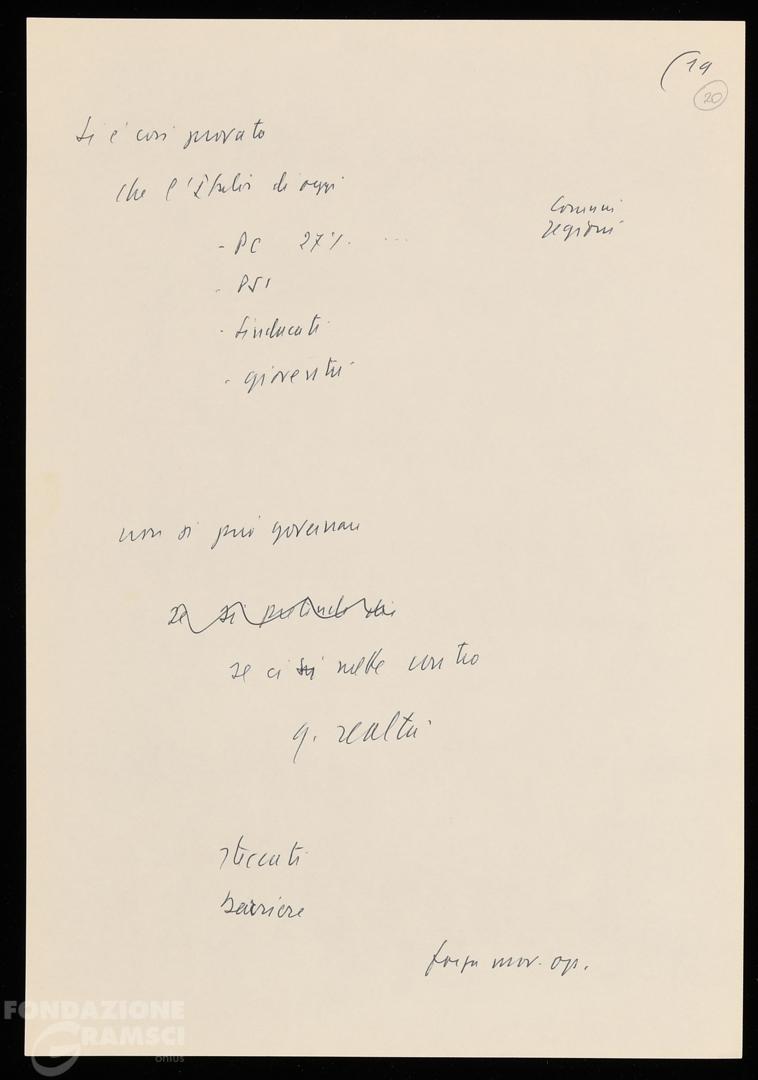 (19
20
Si è così provato
che l'Italia di oggi
Comuni
regioni
- PC 27% ...
- PSI
- Sindacati
- gioventù
non si può governare
se si pretende di
se ci si mette contro
q. realtà
steccati
barriere
forza mov. op.
FONDAZIONE
GRAMSCI
onlus